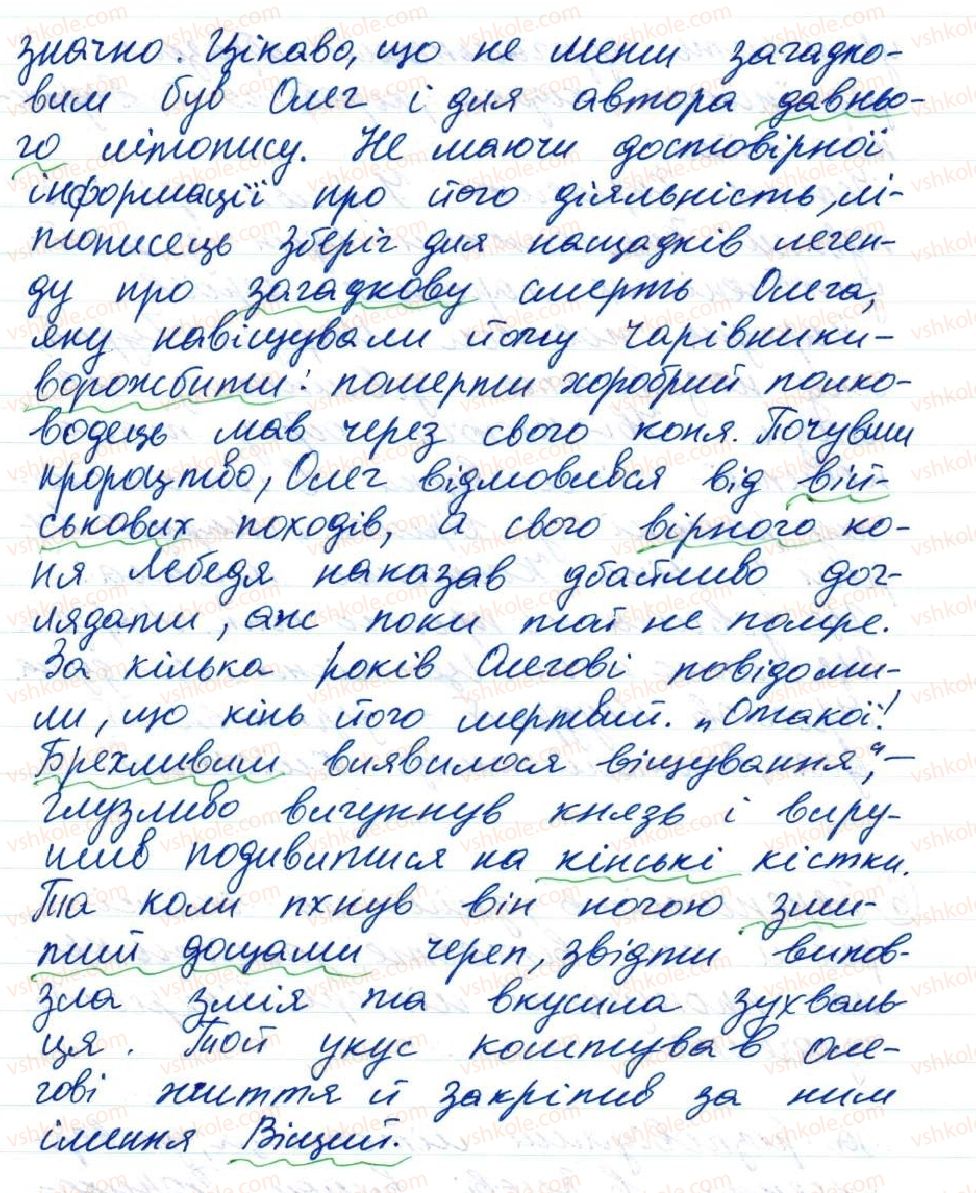 значно. Цікаво, що не менш загадко-
вим був Олег і для автора давньо-
го літопису. Не маючи достовірної
інформації про його діяльність, лі-
тописець зберіг для нащадків леген-
ду про загадкову смерть Олега,
яку навіщували йому чарівники-
ворожбити: померти хоробрий полко-
водець мав через свого коня. Почувши
пророцтво, Олег відмовився від вій-
ськових походів, а свого вірного ко-
ня Лебедя наказав дбайливо дог-
лядати, аж поки той не помре.
За кілька років Олегові повідоми-
ли, що кінь його мертвий. „Отакої!
Брехливим виявилося віщування", –
глузливо вигукнув князь і виру-
шив подивитися на кінські кістки.
Та коли пхнув він ногою зми-
тий дощами череп, звідти випов-
зла змія та вкусила зухваль-
ця. Той укус коштував Оле-
гові життя й закріпив за ним
імення Віщий.